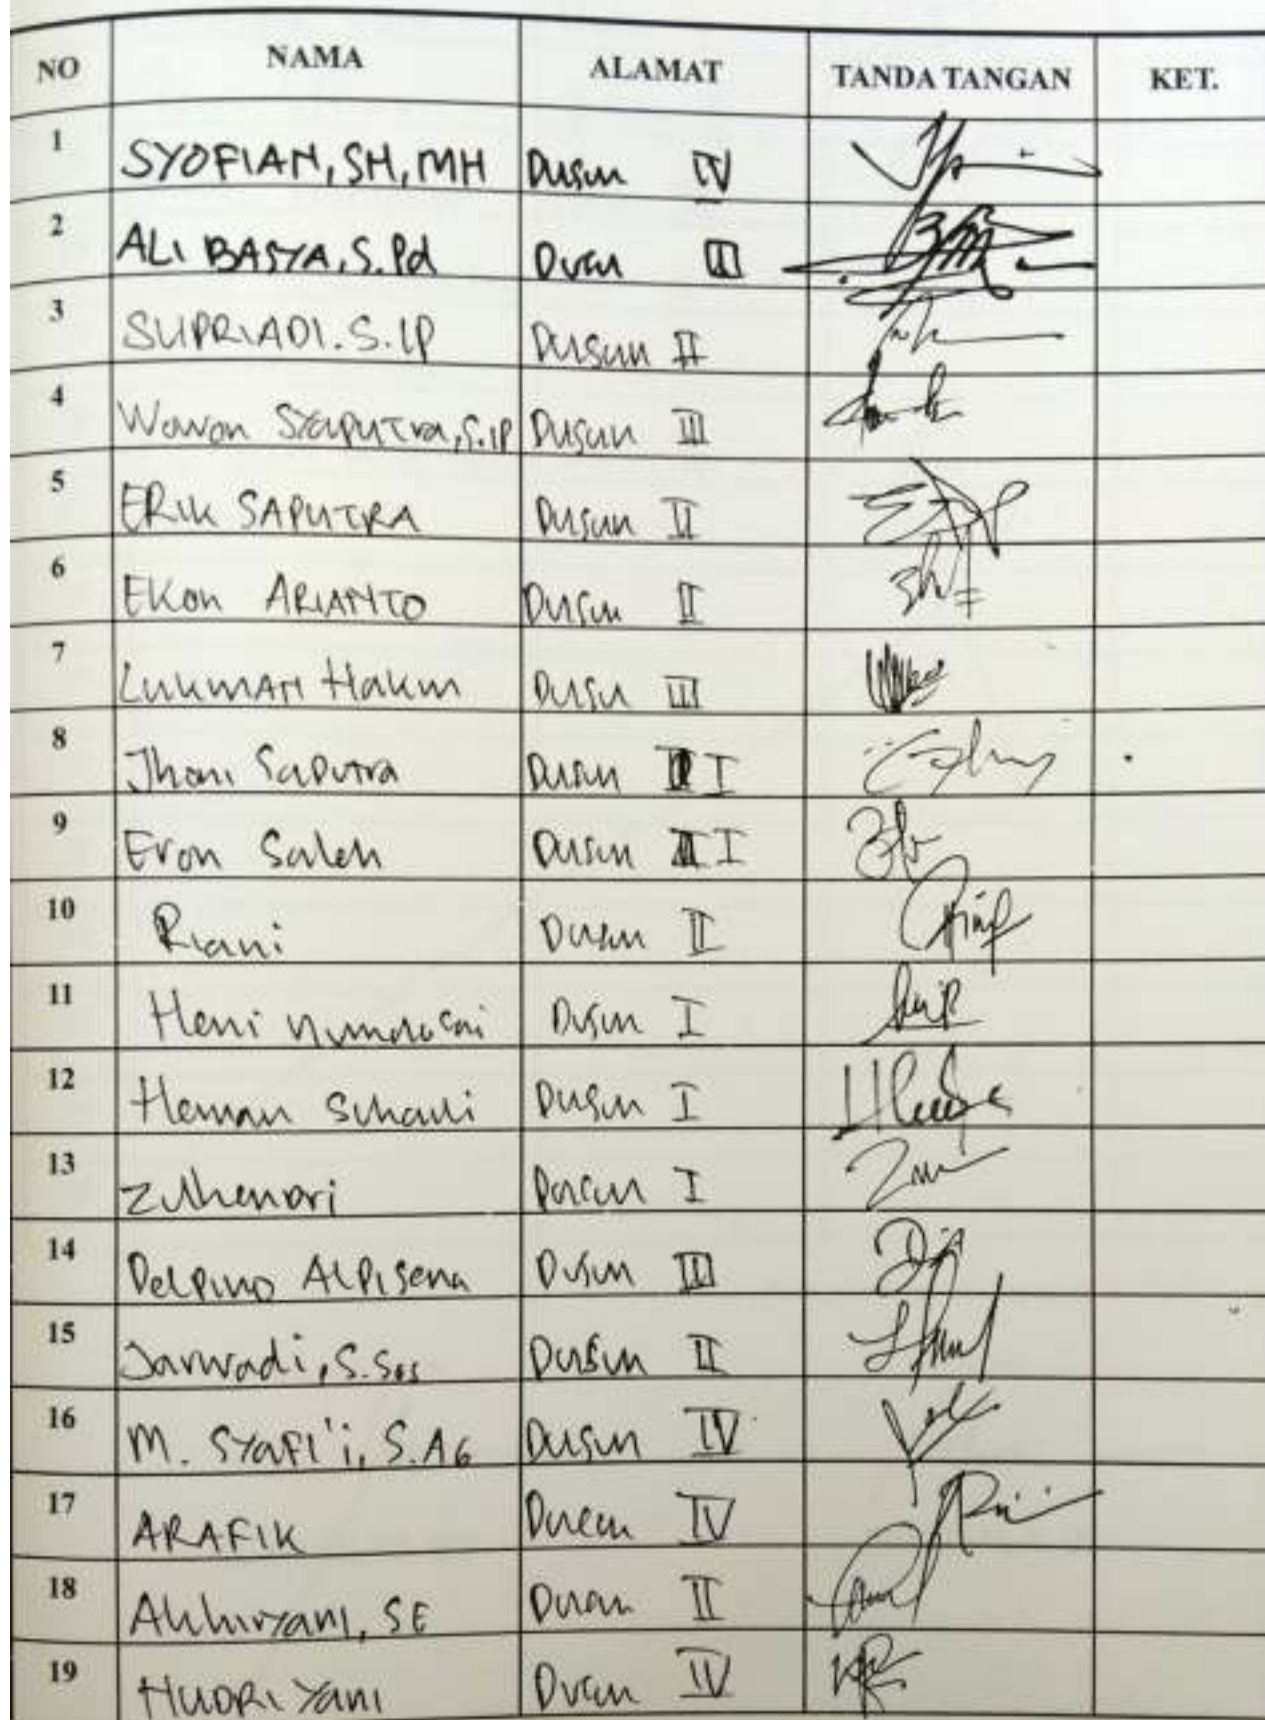 NO NAMA ALAMAT TANDA TANGAN KET.
1 SYOFIAN, SH, MH Dusun IV
2 ALI BASYA, S.Pd Dusun III
3 SUPRIADI. S.IP Dusun II
4 Wawan SYAPUTra, S.IP Dusun III
5 ERIK SAPUTRA Dusun II
6 EKon ARIANTO Dusun II
7 LukmAN Hakim Dusun III
8 Jhoni Saputra Dusun I
9 Eron Saleh Dusun I
10 Riani Dusun II
11 Heni Dusun I
12 Heman Suhadi Dusun I
13 Zulhenari Dusun I
14 Delpino ALPISena Dusun III
15 Jarwadi, S.Sos Dusun II
16 M. SYAFI'i, S.AG Dusun IV
17 ARAFIK Dusun IV
18 Akhiryani, SE Dusun II
19 HUDRI Yani Dusun IV